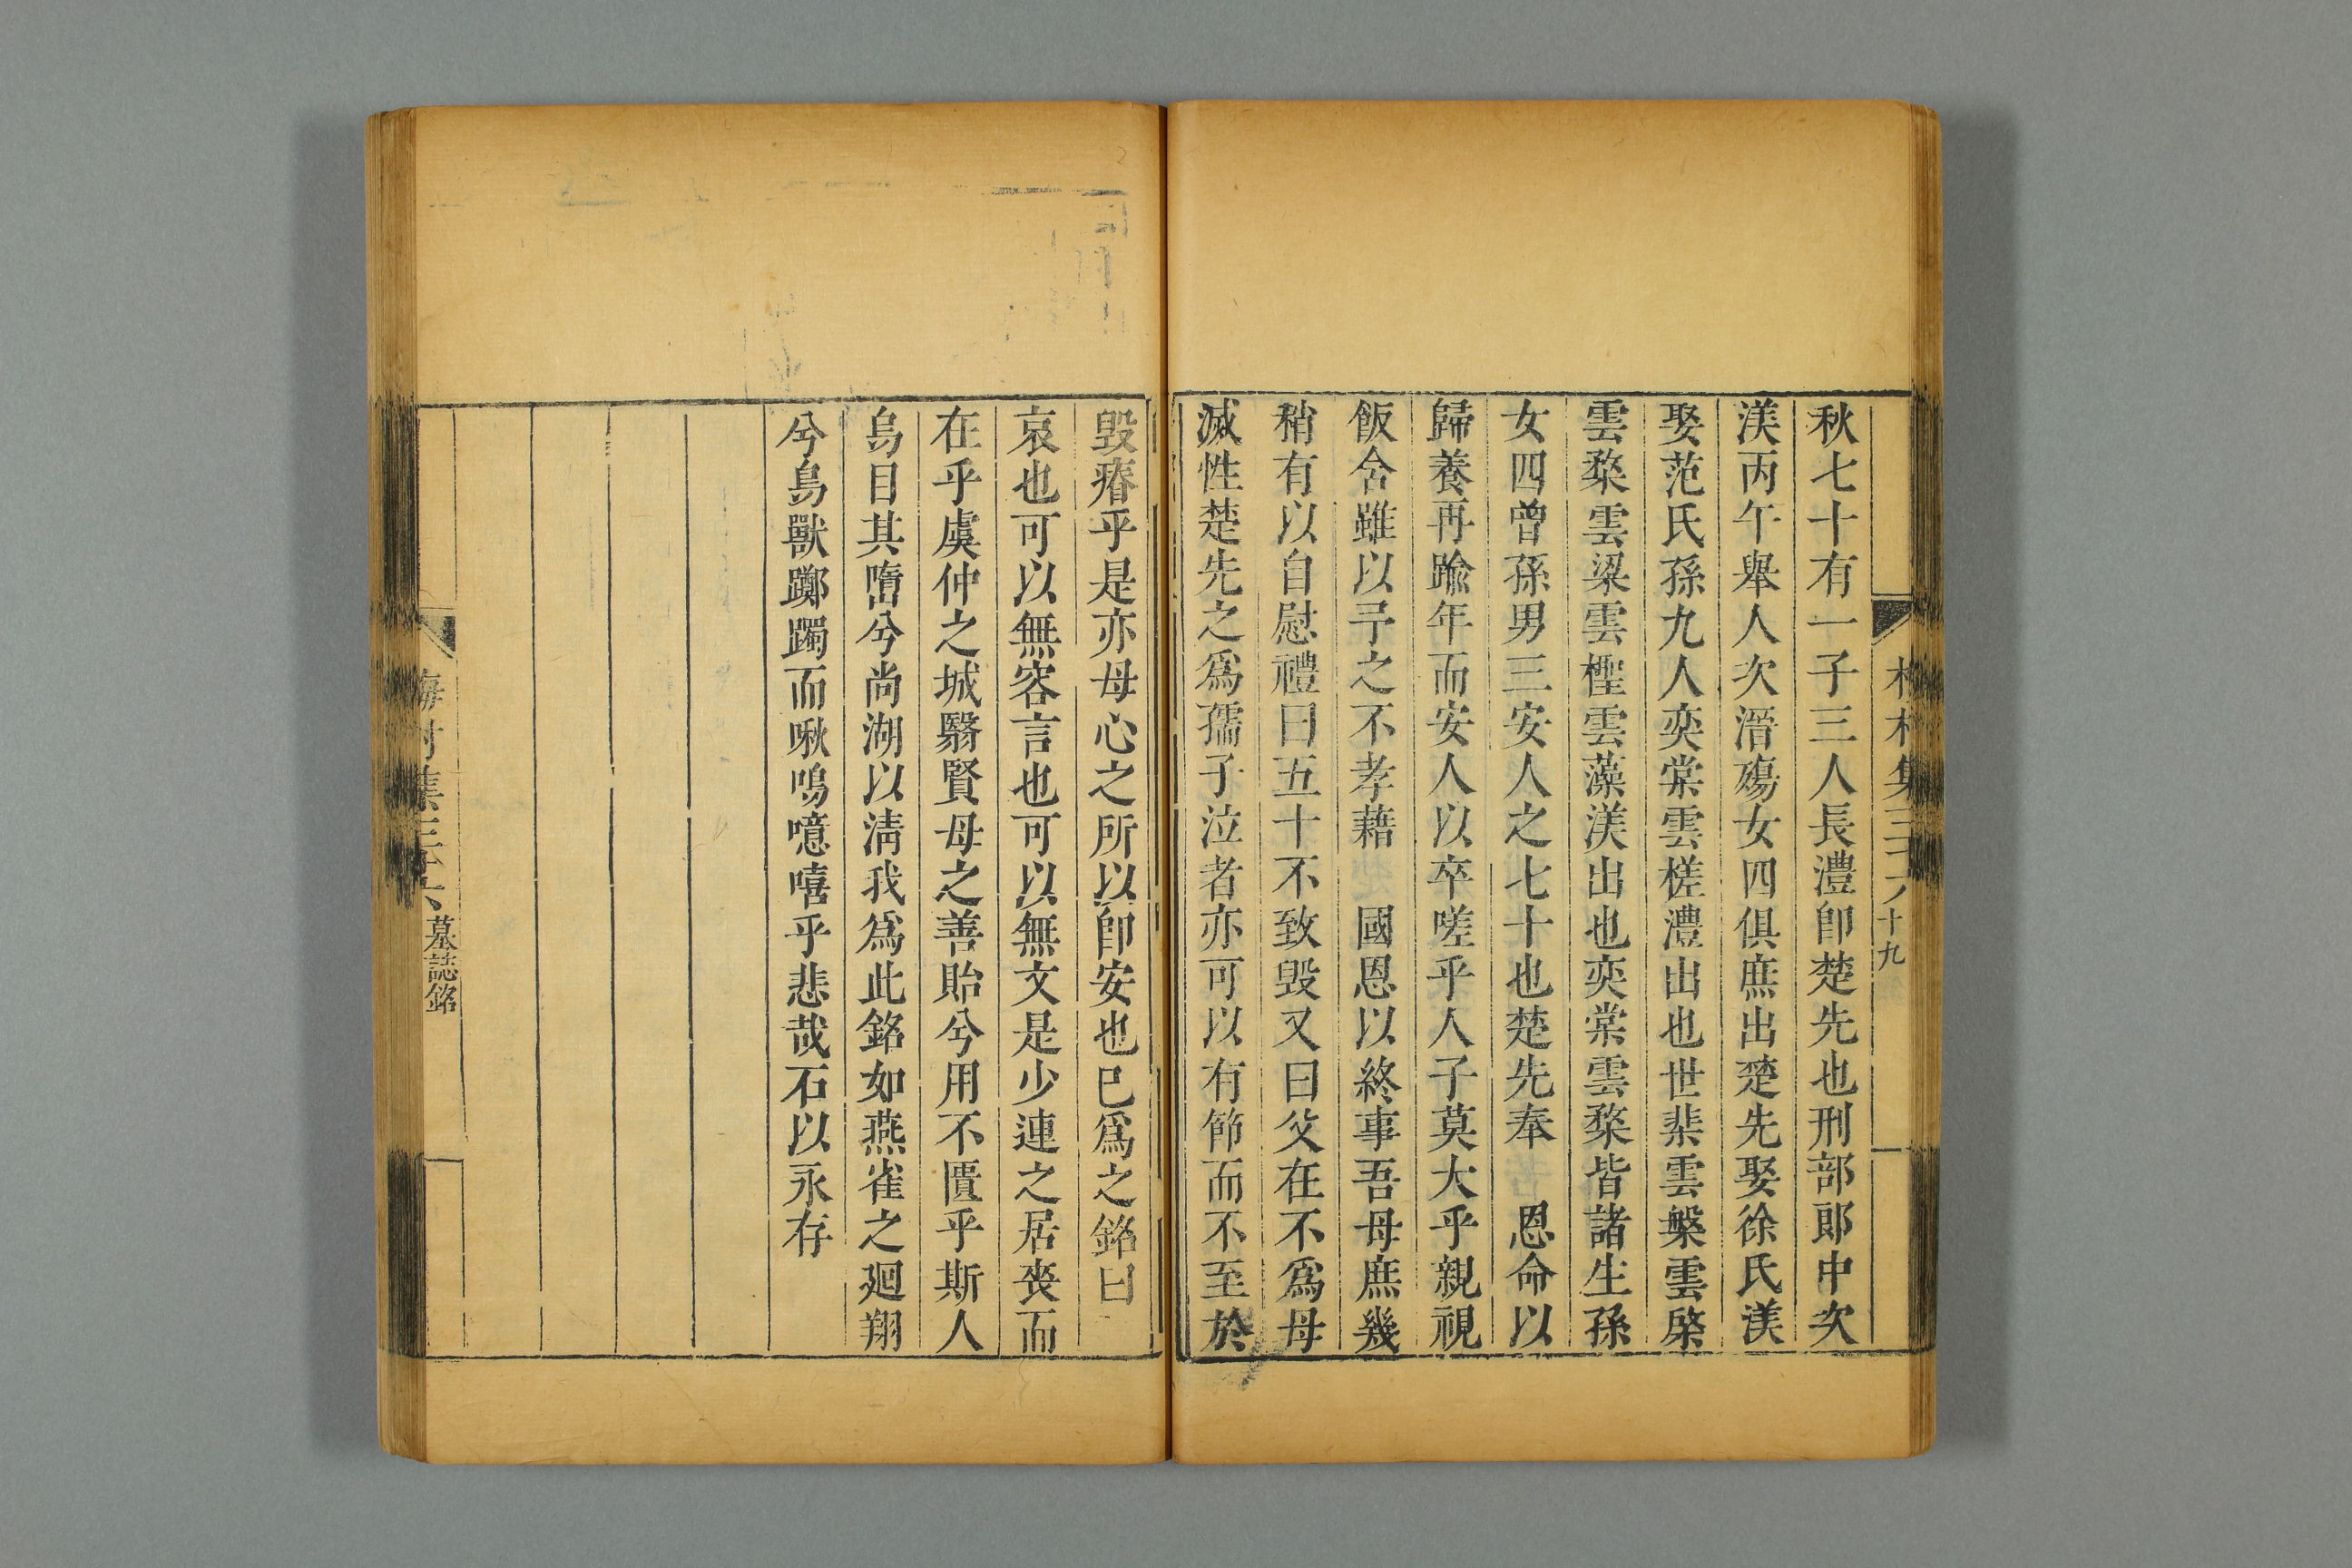 秋七十有一子三人長澧卽楚先也刑部郎中次
渼丙午舉人次溍殤女四俱庶出楚先娶徐氏渼
娶范氏孫九人奕棠雲槎澧出也世棐雲槃雲棨
雲楘雲梁雲檉雲藻渼出也奕棠雲楘皆諸生孫
女四曾孫男三安人之七十也楚先奉 恩命以
歸養再踰年而安人以卒嗟乎人子莫大乎親視
飯含雖以予之不孝藉 國恩以終事吾母庶幾
稍有以自慰禮曰五十不致毀又曰父在不爲母
滅性楚先之爲孺子泣者亦可以有節而不至於
十九
毀瘠乎是亦母心之所以卽安也已爲之銘曰
哀也可以無容言也可以無文是少連之居喪而
在乎虞仲之城翳賢母之善貽兮用不匱乎斯人
烏目其嶞兮尚湖以淸我爲此銘如燕雀之廻翔
兮鳥獸躑躅而啾鳴噫嘻乎悲哉石以永存
墓誌銘